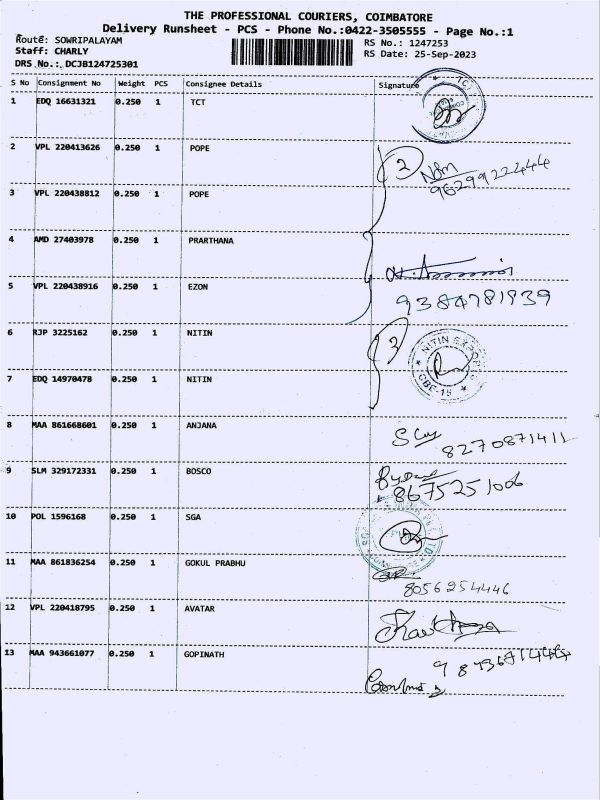 THE PROFESSIONAL COURIERS, COIMBATORE
Delivery Runsheet - PCS - Phone No.:0422-3505555 - Page No.:1
Route: SOWRIPALAYAM
RS No.: 1247253
Staff: CHARLY
RS Date: 25-Sep-2023
DRS No.: DCJB124725301
S No Consignment No Weight PCS Consignee Details Signature
1 EDQ 16631321 0.250 1 TCT
2 VPL 220413626 0.250 1 POPE
2
9629922444
3 VPL 220438812 0.250 1 POPE
4 AMD 27403978 0.250 1 PRARTHANA
5 VPL 220438916 0.250 1 EZON
9384781939
6 RJP 3225162 0.250 1 NITIN
2 NITIN
CBE-15
7 EDQ 14970478 0.250 1 NITIN
8 MAA 861668601 0.250 1 ANJANA
8270871411
9 SLM 329172331 0.250 1 BOSCO
8675251006
10 POL 1596168 0.250 1 SGA
11 MAA 861836254 0.250 1 GOKUL PRABHU
8056254446
12 VPL 220418795 0.250 1 AVATAR
13 MAA 943661077 0.250 1 GOPINATH